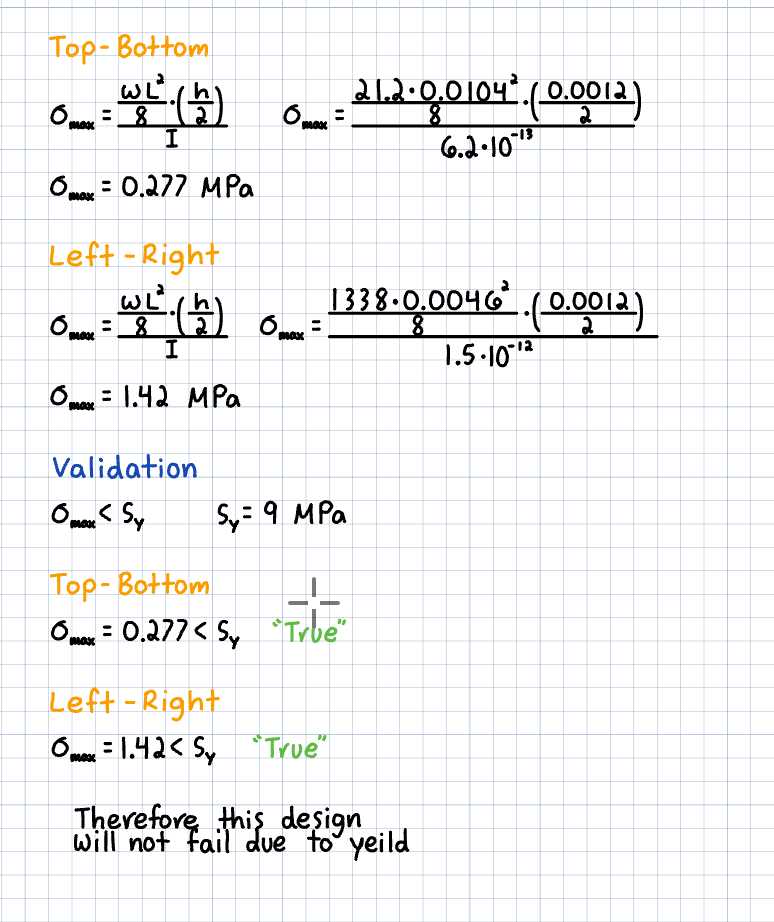 Top-Bottom
σmax = ((ωL²/8)·(h/2))/I    σmax = ((21.2·0.0104²/8)·(0.0012/2))/(6.2·10⁻¹³)
σmax = 0.277 MPa
Left-Right
σmax = ((ωL²/8)·(h/2))/I    σmax = ((1338·0.0046²/8)·(0.0012/2))/(1.5·10⁻¹²)
σmax = 1.42 MPa
Validation
σmax < Sy    Sy = 9 MPa
Top-Bottom
σmax = 0.277 < Sy    "True"
Left-Right
σmax = 1.42 < Sy    "True"
Therefore this design
will not fail due to yeild